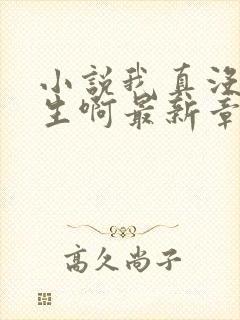 小説我真没
生啊最新章
高久尚子